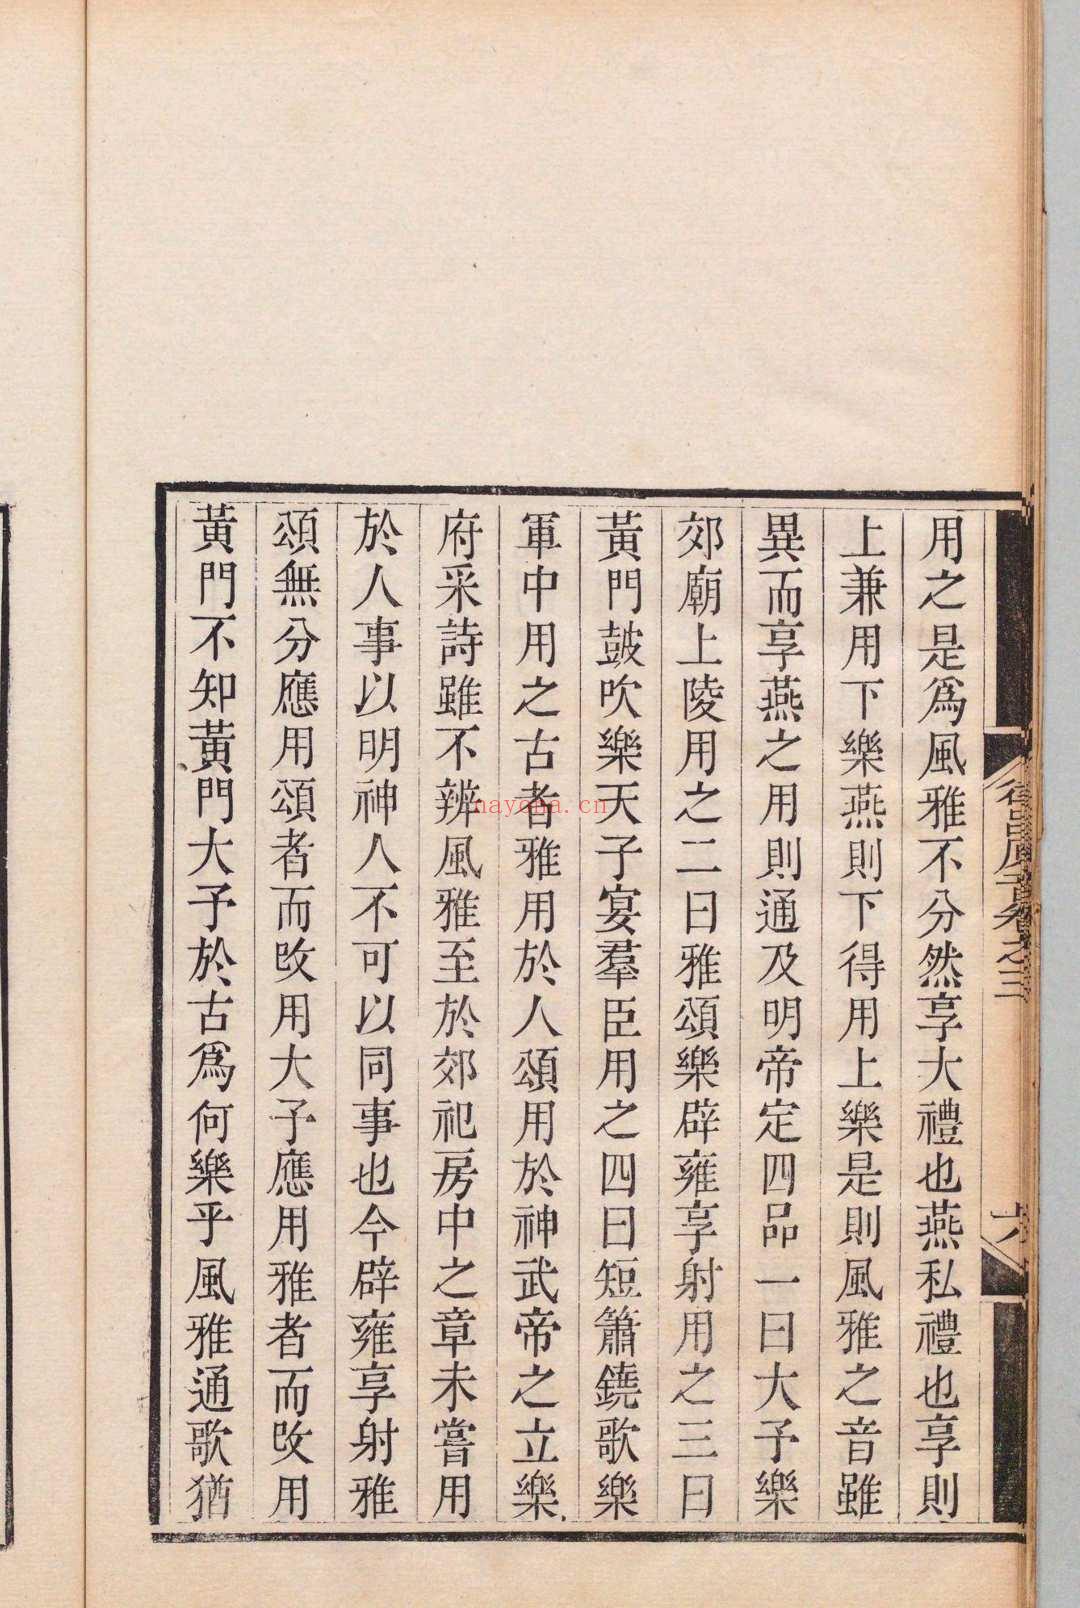 用之是爲風雅不分然享大禮也燕私禮也享則
上兼用下樂燕則下得用上樂是則風雅之音雖
異而享燕之用則通及明帝定四品一曰大予樂
郊廟上陵用之二曰雅頌樂辟雍享射用之三曰
黃門鼓吹樂天子宴羣臣用之四曰短簫鐃歌樂
軍中用之古者雅用於人頌用於神武帝之立樂
府采詩雖不辨風雅至於郊祀房中之章未嘗用
於人事以明神人不可以同事也今辟雍享射雅
頌無分應用頌者而改用大予應用雅者而改用
黃門不知黃門大予於古爲何樂乎風雅通歌猶
卷之三
六
nayona.cn